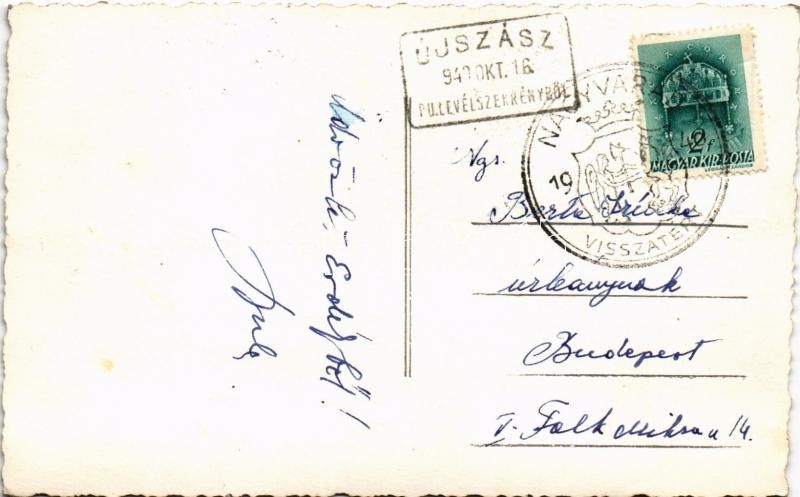 ÚJSZÁSZ
940 OKT. 16.
PU.LEVÉLSZEKRÉNYBŐL
NAGYVÁRAD
19
VISSZATÉRT
2
MAGYAR KIR. POSTA
Ngs.
Berta
úrleánynak
Budapest
V. Falk Miksa u 14.
Üdvözlet Erdélyből!
Gyula